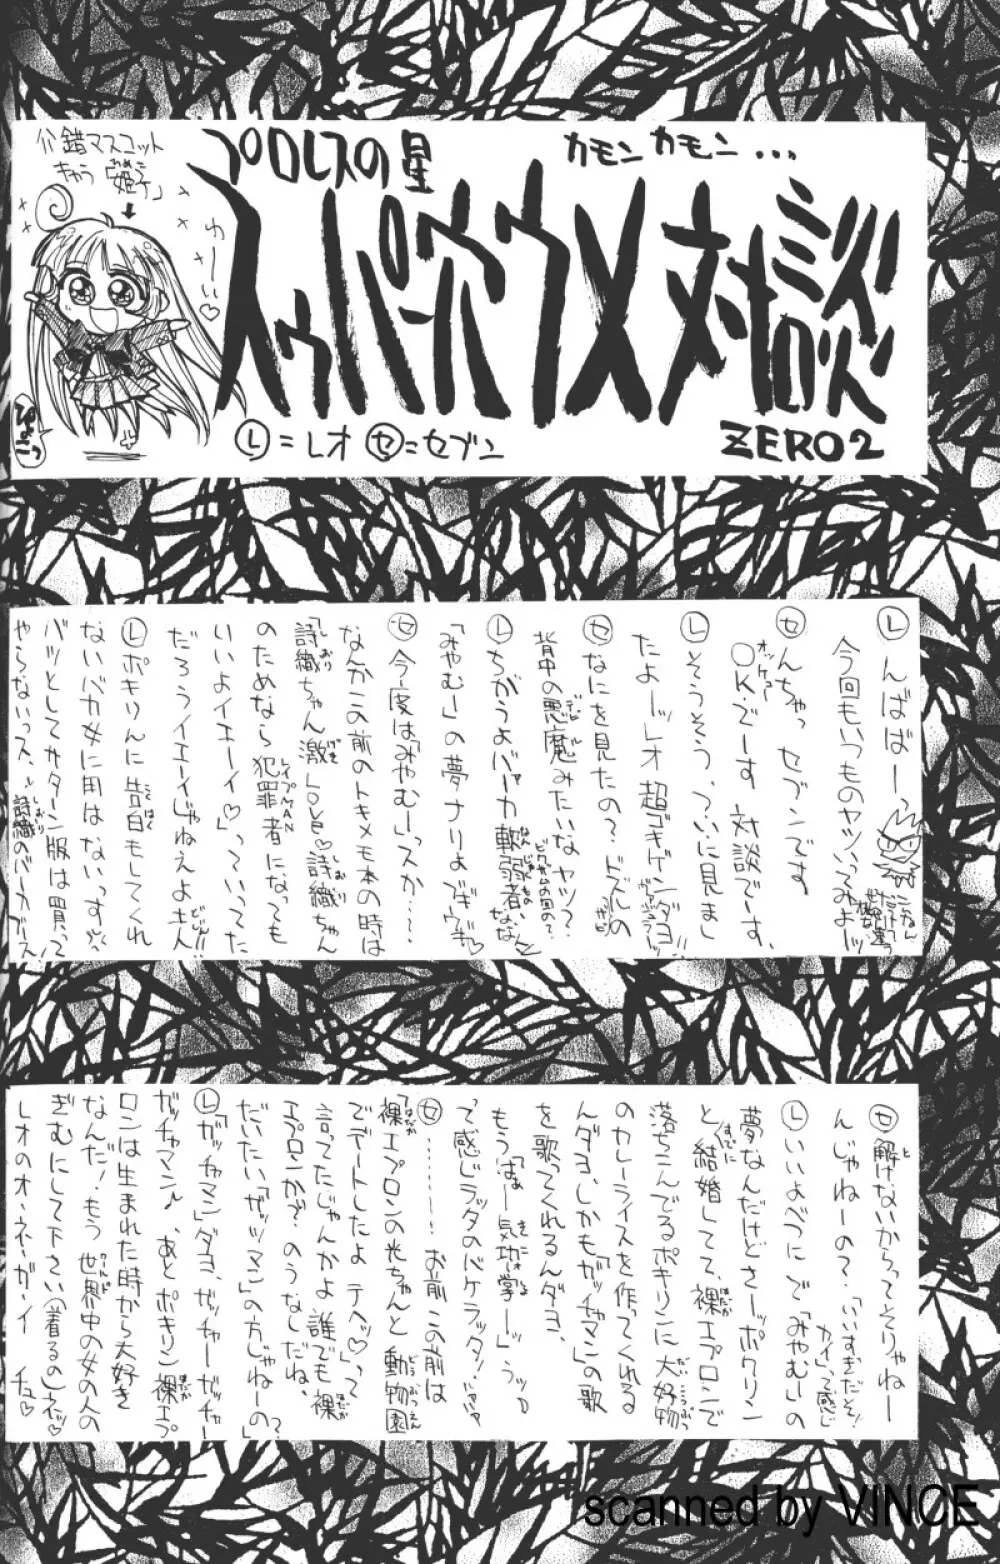 介錯マスコット
きゅう「姫子」
ひめこ
わーい♡
ぴょこっ
プロレスの星
カモン カモン...
スゥパーホウメ対談
ZERO2
Ⓛ=レオ ㋝=セブン
Ⓛんばばー?
今回もいつものヤツいってみよーッ
㋝んちゃっ セブンです
OKでーす 対談でーす、
オッケェー
Ⓛそうそう、ついに見まし
たよーッレオ超ゴキゲンダヨ!!
㋝なにを見たの? ドズルの
背中の悪魔みたいなヤツ?
Ⓛちがうよバァーカ 軟弱者、な
「みやむー」の夢ナリよ ブギウギ♡
㋝今度は「みやむー」っスか・・・?
なんかこの前のトキメモ本の時は
「詩織ちゃん激Love♡詩織ちゃん
しおり げき しおり
のためなら犯罪者になっても
レイプMAN
いいよイエーイ♡」っていってた
だろうイエーイじゃねえよ主人
Ⓛポキりんに告白もしてくれ
こくはく
ないバカ女に用はないっす
バツとしてサターン版は買って
やらないっス、詩織のバーカブース
しおり
㋝解けないからってそりゃねー
と
んじゃねーの?「いいすぎだぞ!
カイ」って感じ
Ⓛいいよべつに で「みやむー」の
夢なんだけどさーッポクリン
と結婚してて、裸エプロンで
すでに はだか
落ちこんでるポキリンに大好物
だいこうぶつ
のカレーライスを作ってくれる
んダヨ、しかも「ガッチャマン」の歌
を歌ってくれるんダヨ、
もう「はぁー気功掌ーッ」うッッ
って感じラッタのバケラッタッ!
㋝・・・・・・・・・! お前この前は
「裸エプロンの光ちゃんと動物園
はだか どうぶつえん
でデートしたよ テヘッ♡」って
言ってたじゃんかよ 誰でも裸
はだか
エプロンかで?のうなしだね、
だいたい「ガッツマン」の方じゃねーの?」
Ⓛ「ガッチャマン」ダヨ、ガッチャーガッチャ
ガッチャマン♪、あとポキリン裸エプ
はだか
ロンは生まれた時から大好き
なんだ!もう世界中の女の人の
ワールド
ぎむにして下さい(着るの)ネッ♡
レオのオ・ネ・ガ・イ チュ♡
scanned by VINCE